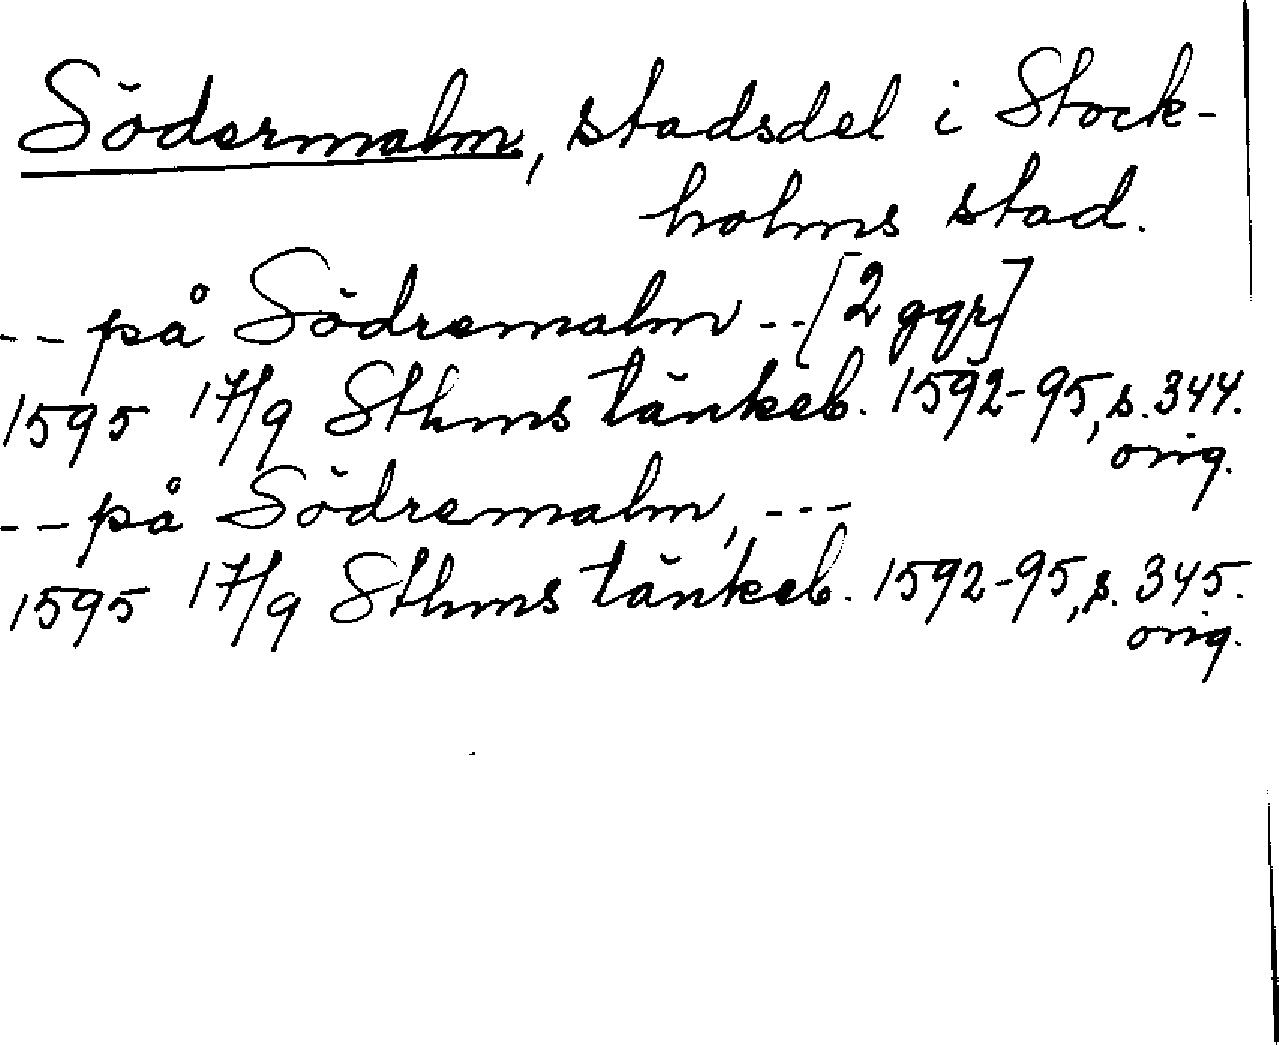 Södermalm, stadsdel i Stock-
holms stad.
-- på Södremalm --[2 ggr]
1595 17/9 Sthms tänkeb. 1592-95, s. 344.
orig.
-- på Södremalm, ---
1595 17/9 Sthms tänkeb. 1592-95, s. 345.
orig.